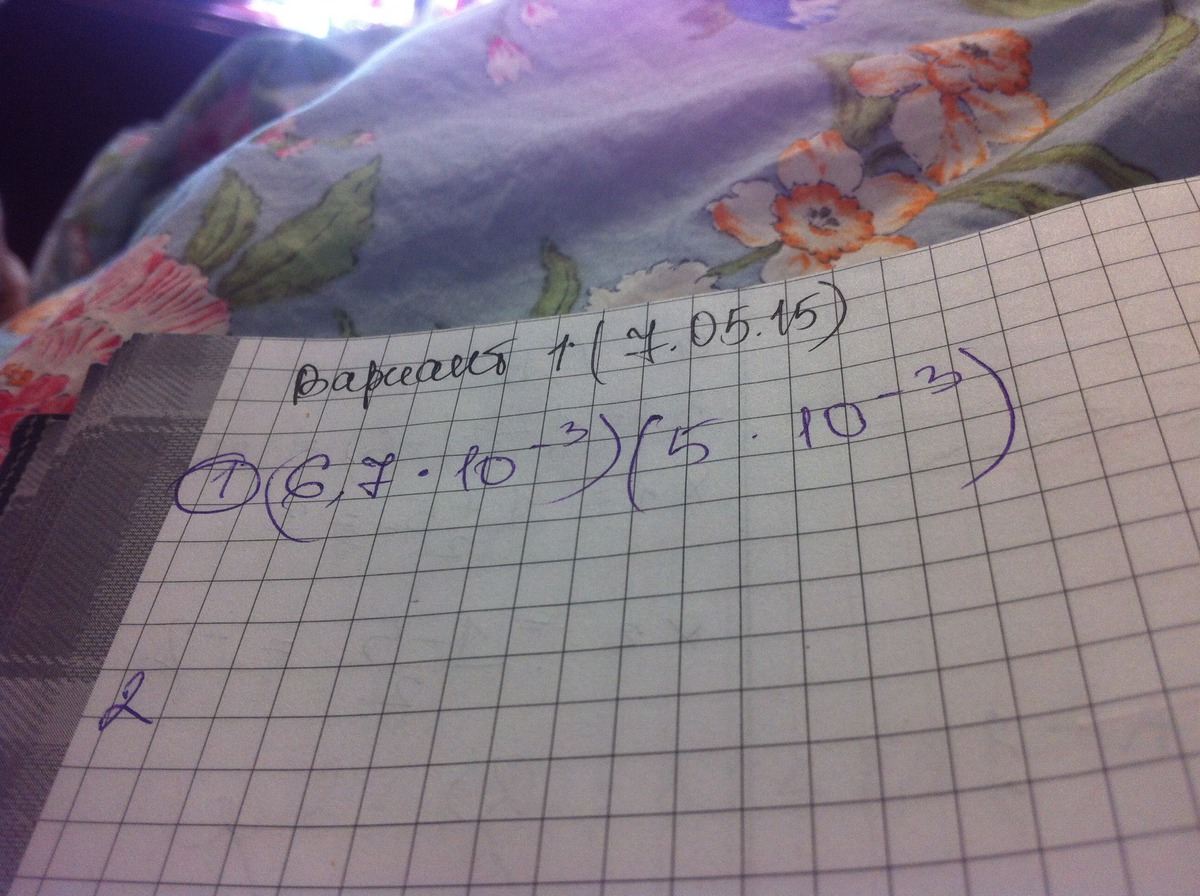 Вариант 1 (7.05.15)
① (6,7 · 10⁻³)(5 · 10⁻³)
2